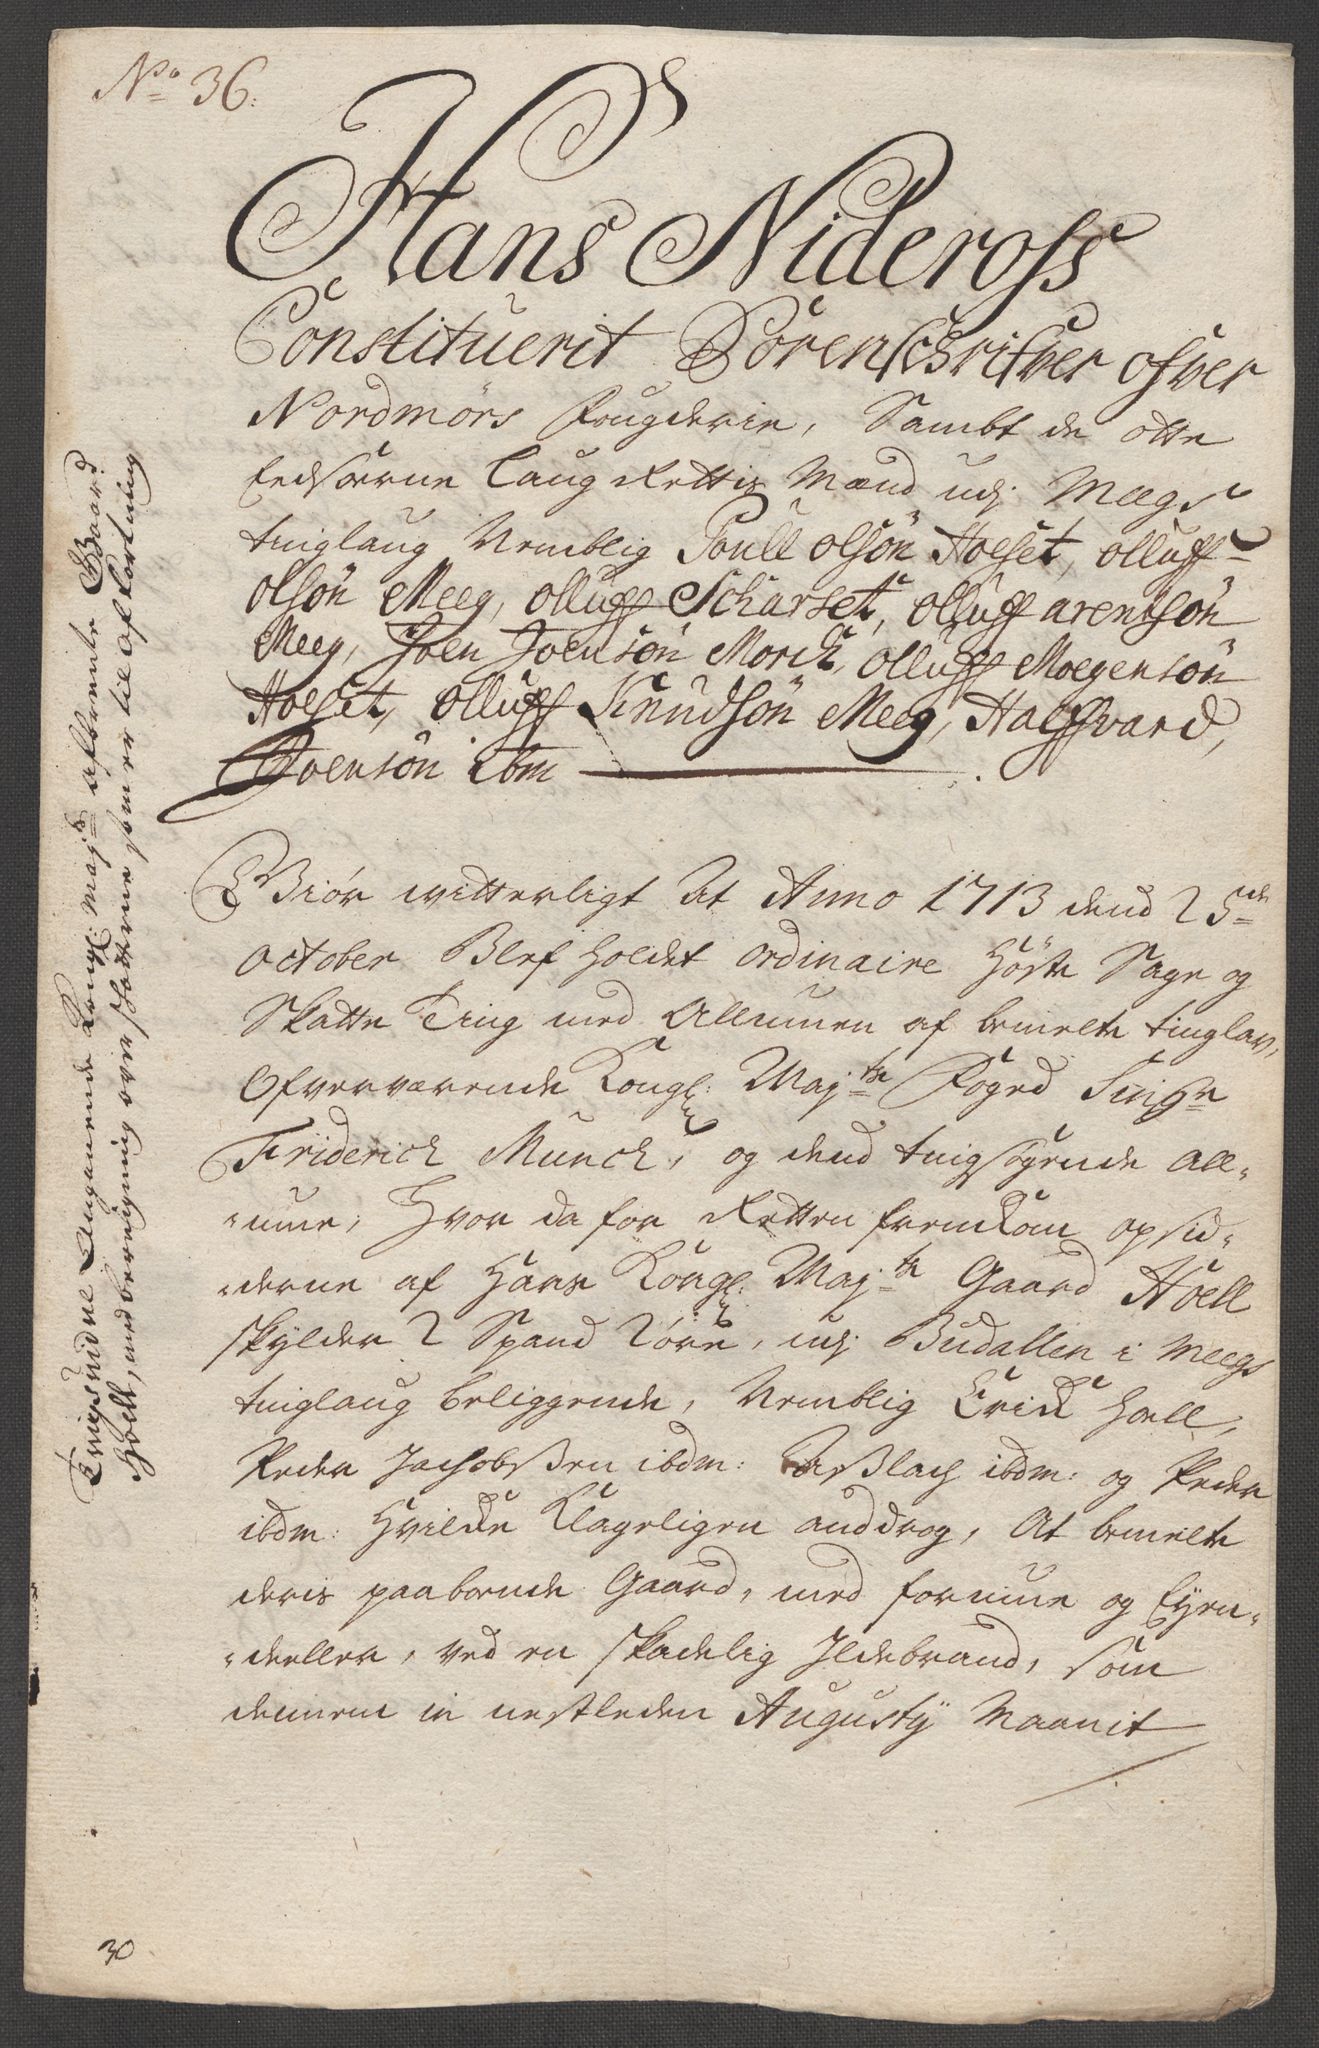 No 36.
Hans Nideross
Constituerit Sorenschrifver ofver
Nordmörs Fougderie, Sambt de otte
Eedsorne Laug Rettis Mænd udj Meegs
tinglaug Nemblig Poull olsön Hoeset, olluff
olsön Meeg, olluff Scharset, olluff arentsön
Meeg, Joen Joensön Morch, olluff Moegensön
Hoeset, olluff Knudsön Meeg, Halfvard,
Joensön Ibm
Giör witterligt At Anno 1713 dend 25de
October Blef holdet ordinaire Höste Sage og
Skatte Ting med Allmuen af bemelte tinglav,
Ofverværende Kongl: Maj:ts Foged Sr
Friderich Munch, og dend tingsøgende All-
mue, Hvor da for Retten fremkom opsid-
derne af Hans Kongl: Maj:ts Gaard Höell
skylder 2 Spand 2 öre, udj Budallen i Meegs
tinglaug beliggende, Nemblig Erick Hoell,
Peder Jachobsen ibdm: Aslach ibdm: og Peder
ibdm: Hvilke Klageligen anddrog, At bemelte
deris paaboende Gaard, med formue og Eyen-
deeller, ved en skadelig Ildebrand, som
dennem in nestleden Augustij Maanit
Tingsvidne Angaaende Kongl: Maj:ts afbrente Gaard
Höell, med beregning over skatterne som er til afkortning
30